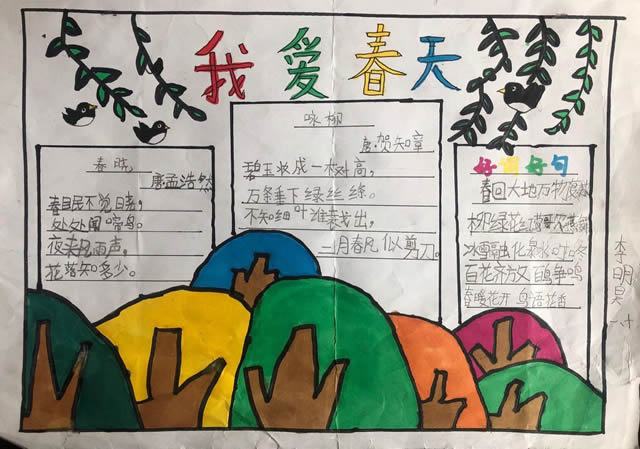 我爱春天
春晓
唐孟浩然
春眠不觉日尧,
处处闻啼鸟。
夜来风雨声,
花落知多少。
咏柳
唐·贺知章
碧玉妆成一树高,
万条垂下绿丝绦。
不知细叶谁裁出,
二月春风似剪刀。
好词好句
春回大地万物
柳绿花红
冰雪融化泉水叮咚
百花齐放百鸟争鸣
春暖花开 鸟语花香
李明昊